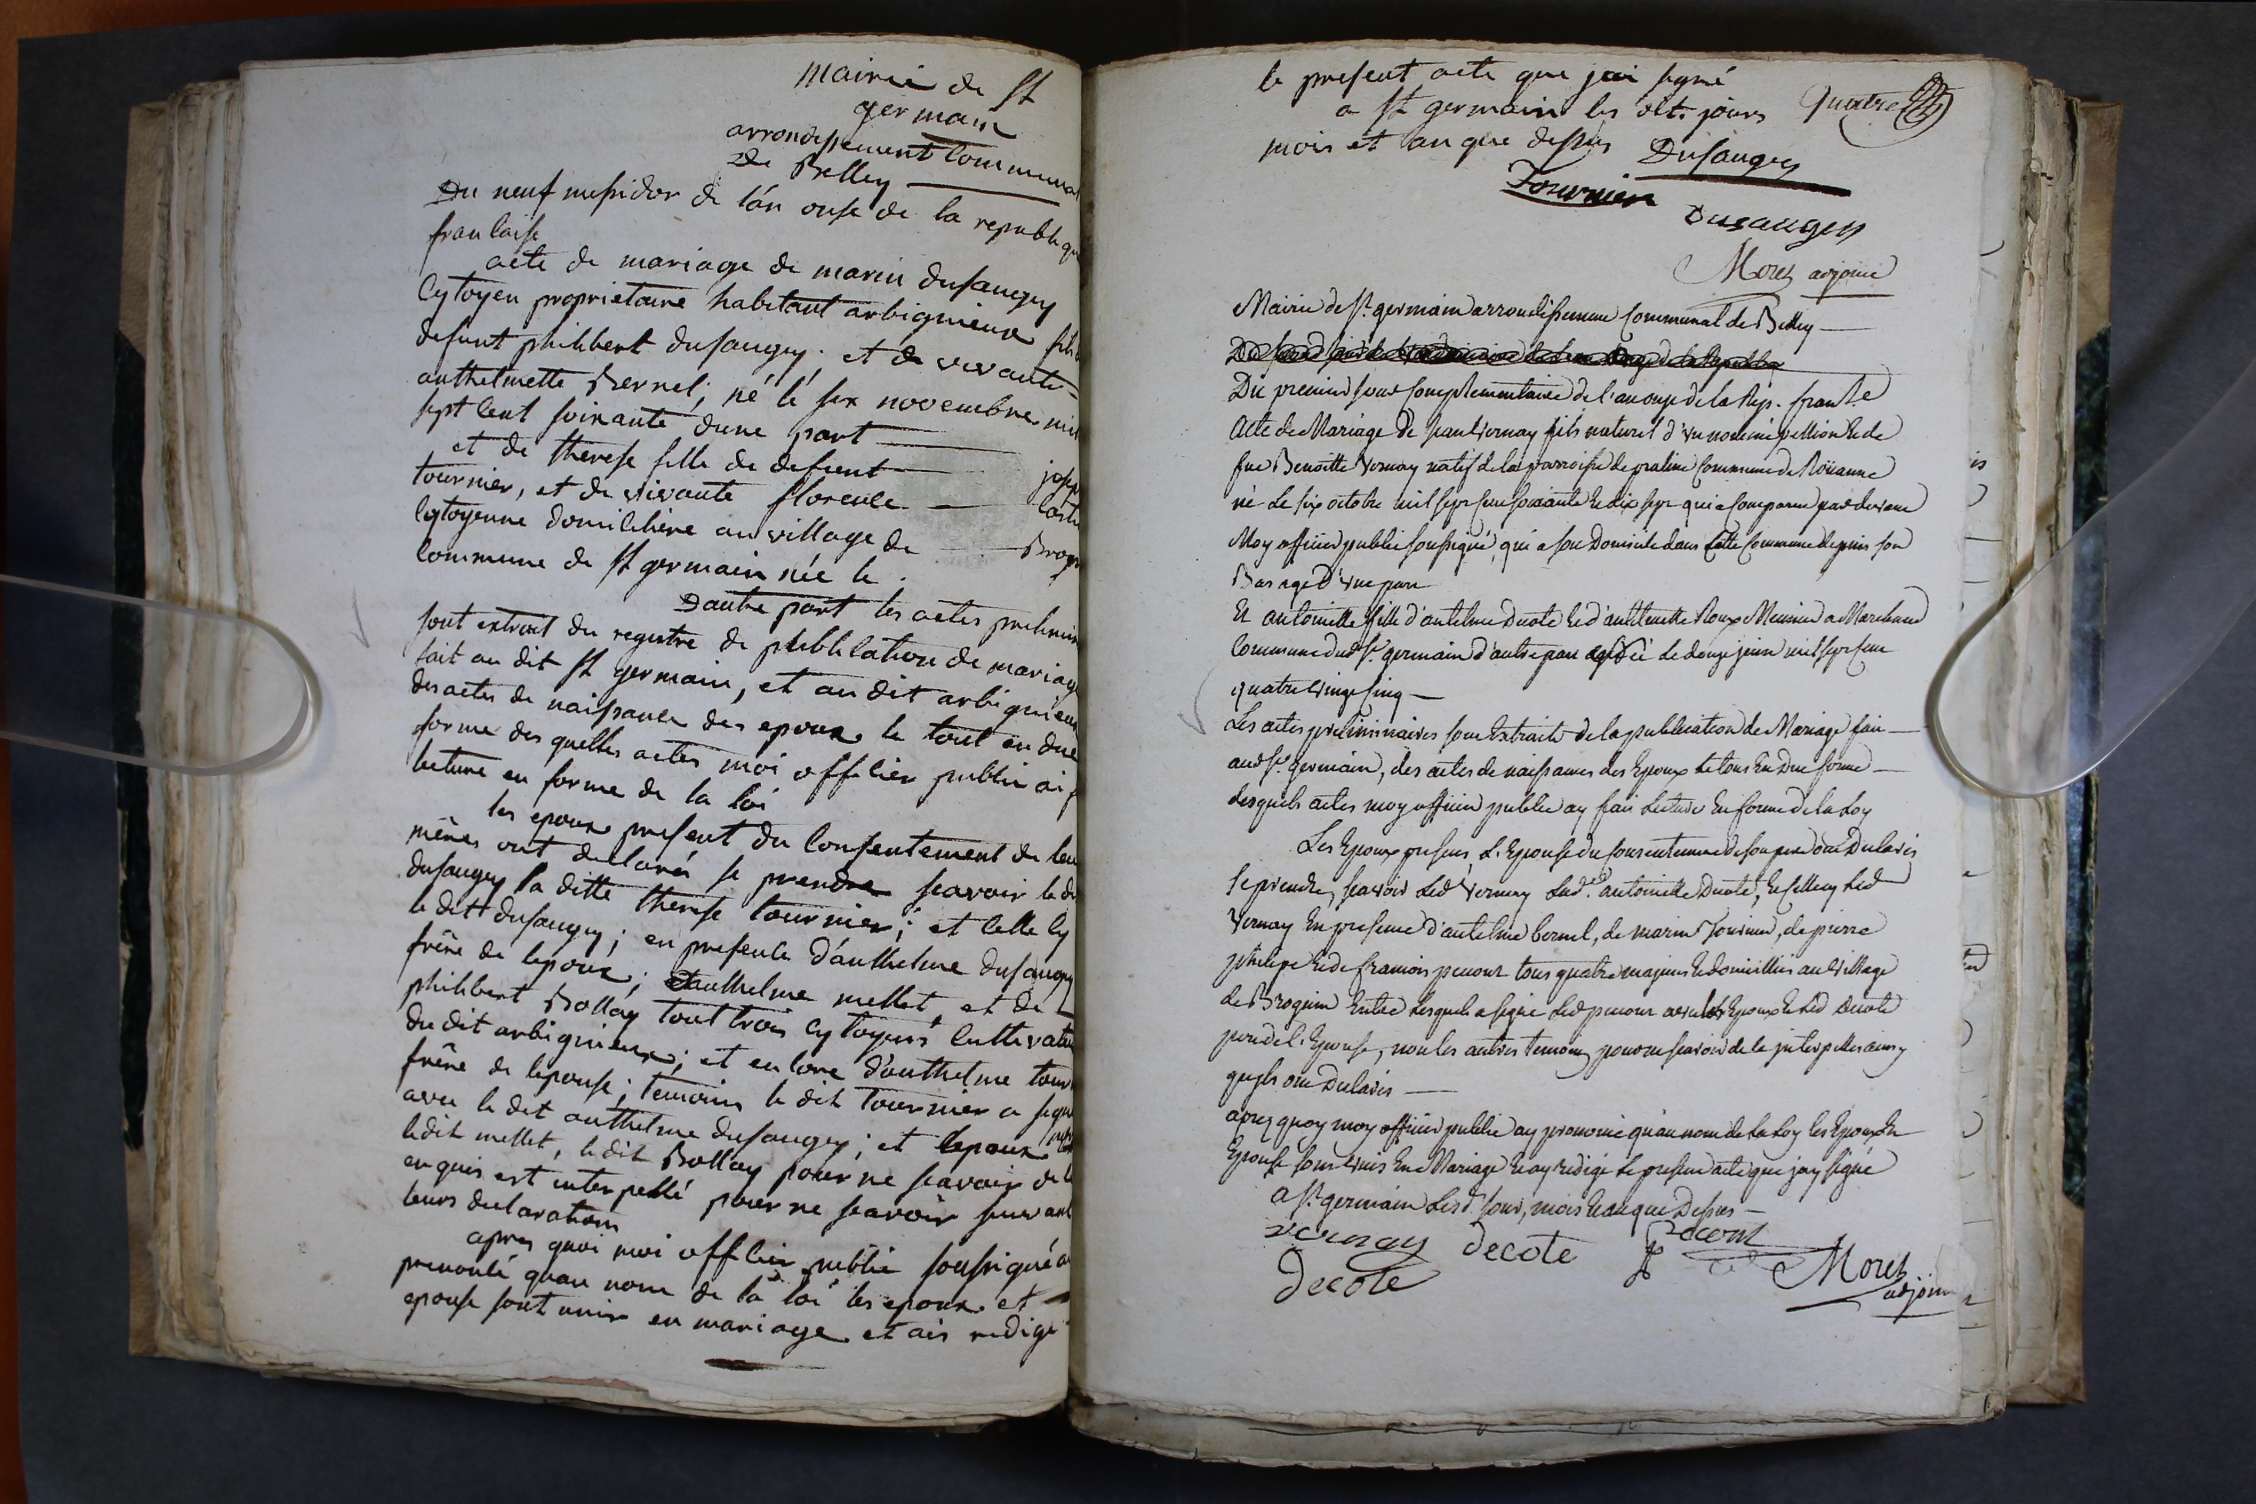 Mairie de St
germain
arrondissement Communal
de Belley
Du neuf messidor de l'an onse de la republique
francaise
acte de mariage de marin dusaugey
Cytoyen proprietaire habitant arbignieux fils
defunt philibert dusaugey ; et de vivante
anthelmette Bernel ; né le six novembre mil
sept Cent soixante d'une part
et de therese fille de defunt josep
tournier, et de vivante florence
Cytoyenne domiciliére au village de Brog
Commune de St germain née le .
D'autre part les actes prelimin
sont extrait du registre de publication de mariage
fait au dit St germain, et au dit arbignieux
des actes de naissance des epoux le tout en due
forme des quelles actes moi officier public ai f
lecture en forme de la loi
les epoux present du Consentement de leu
méres ont declaré se prendre scavoir le d
dusaugey la ditte therese tournier ; et celle cy
le dit dusaugey ; en presence d'anthelme dusaugey
frére de lepoux ; anthelme mellet, et de
philibert Bollay tout trois Cytoyens Cultivate
du dit arbignieux ; et encore d'anthelme tour
frére de lepouse ; temoins le dit tournier a signé
avec le dit anthelme dusaugey ; et lepoux
ledit mellet, le dit Bollay pour ne scavoir de
enquis est interpellé pour ne scavoir suivant
leurs declarations
apres quoi moi officier public soussigné a
prononcé quau nom de la loi les epoux et
epouse sont unis en mariage et ais redige
le present acte que jai signé
a St germain les dts jours quatre
mois et an que dessus Dusaugey
Tournier
Dusaugey
Moret adjoint
Mairie de St germain arrondissement Communal de Belley
Du premier jour Complementaire de l'an onze de la Rep. franc.e
Acte de Mariage de paul Vernay fils naturel d'un nommé et de
fue Benoitte Vernay natif de la parroisse de praline Commune de Roüanne
né Le six octobre mil sept cent soixante et dix sept qui a Comparu par devant
Moy officier public soussigné, qui a son Domicile dans Cette Commune depuis son
Bas age d'une part
Et antoinette fille d'antelme Decote et d'anthelmette Roux Meunier a Marchand
Commune dud St germain d'autre part née le douze juin mil sept cent
quatre vingt Cinq
Les actes preliminaires sont Extraits de la publication de Mariage fait
aud St germain, des actes de naissances des Epoux le tout En Due forme
desquels actes moy officier public ay fait Lecture En forme de la Loy
Les Epoux presens, L'Epouse du consentement de son pere ont Declaré
se prendre, scavoir Led Vernay Lad.te antoinette Decote, et celle cy Led
Vernay En presence d'antelme bernel, de marin Tournier, de pierre
philipe et de francois pecout tous quatre majeurs et domicilliés au village
de Brognin Entre Lesquels a signé Led pecout avec les Epoux et Led Decote
pere de l'Epouse, non les autres temoins pour ne scavoir de ce interpellés ainsy
quils ont Declarés
apres quoy moy officier public ay prononcé qu'au nom de la Loy les Epoux Et
Epouse sont unis En Mariage et ay redigé le present acte que jay signé
a St germain Lesd. Jour, mois et an que Dessus
vernay decote Pecout
decote Moret
adjoint